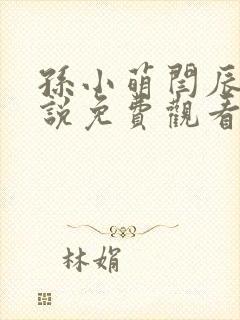 孫小萌閆辰
説免費觀看
林娟